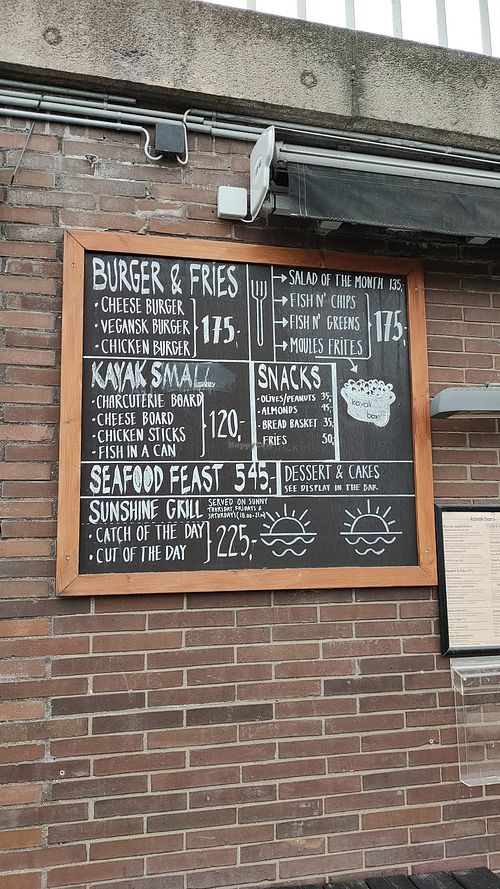 BURGER & FRIES
• CHEESE BURGER
• VEGANSK BURGER
• CHICKEN BURGER
175,-
SALAD OF THE MONTH 135,-
FISH N' CHIPS
FISH N' GREENS
MOULES FRITES
175,-
KAYAK SMALL
• CHARCUTERIE BOARD
• CHEESE BOARD
• CHICKEN STICKS
• FISH IN A CAN
120,-
SNACKS
• OLIVES/PEANUTS 35,-
• ALMONDS 45,-
• BREAD BASKET 35,-
• FRIES 50,-
kayak
bar
SEAFOOD FEAST 545,-
DESSERT & CAKES
SEE DISPLAY IN THE BAR
SUNSHINE GRILL
SERVED ON SUNNY
THURSDAY, FRIDAYS &
SATURDAYS
• CATCH OF THE DAY
• CUT OF THE DAY
225,-
kayak bar